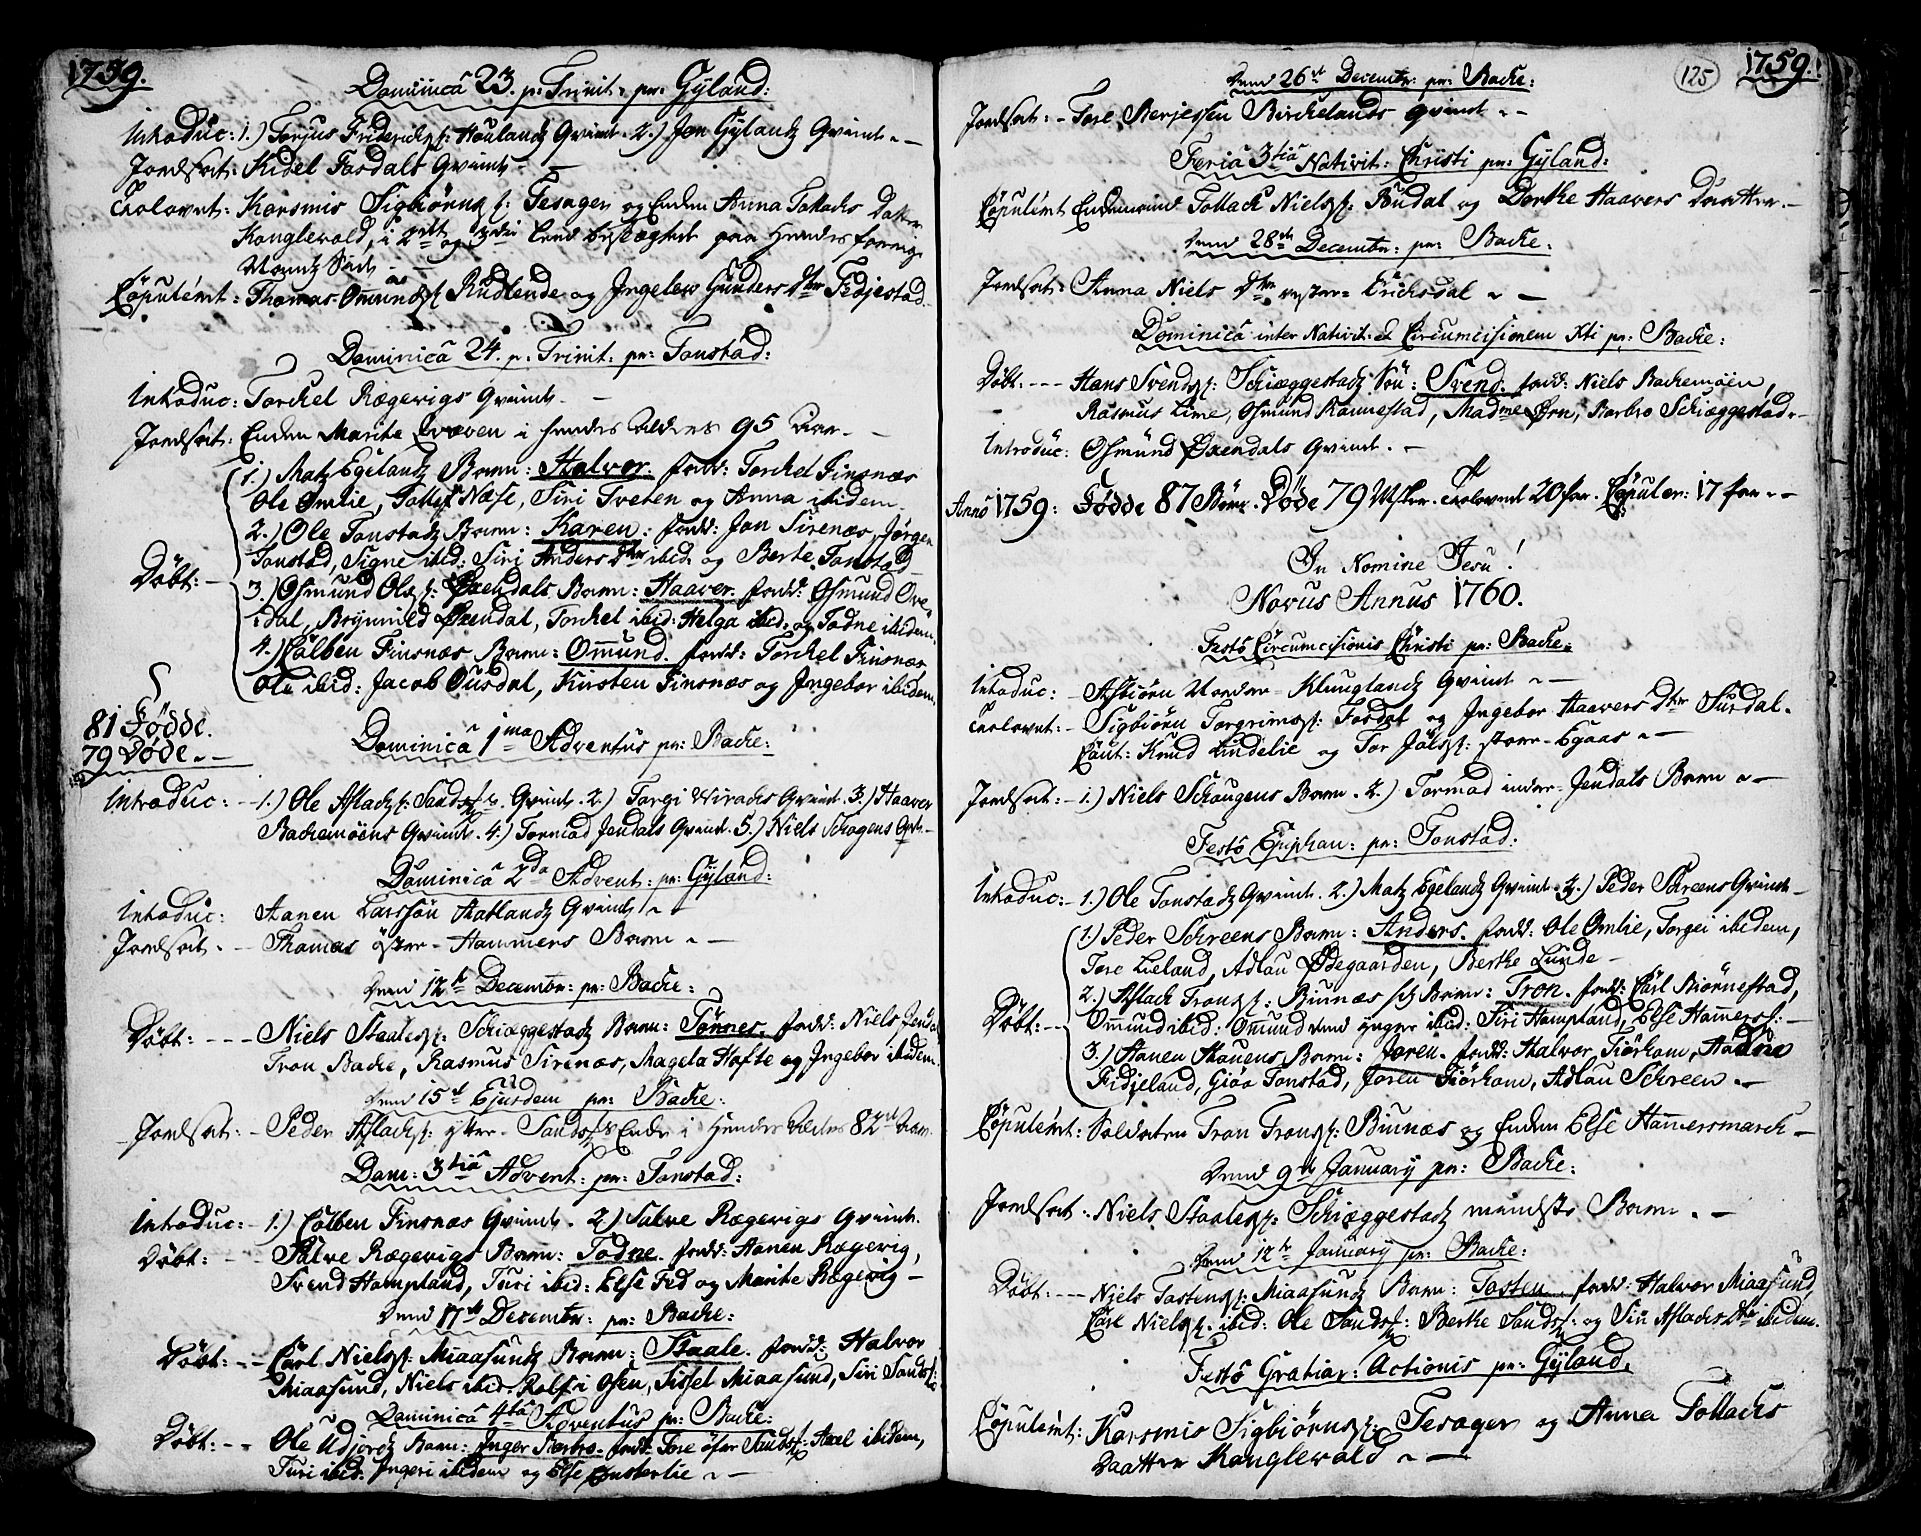 1759.
Dominicâ 23. p: Trinit: pr: Gyland:
Introduc: 1.) Torjus Friderichs: Houlandz Qvinde. 2.) Jon Gylandz Qvinde.
Jordsat: Kidel Fasdals Qvinde
Trolovet: Karsmis Sigbiørns: Tesager og Enken Anna Tollachs Datter
Konglevold, i 2det og 3die Leed beslægtet paa Hendes forrige
Mands Side
Copuleret: Thomas Omunds: Rudlende og Ingelev Gunders Dtr Fidjestad.
Dominicâ 24. p: Trinit: pr: Tonstad:
Introduc: Torchel Rægevigs Qvinde.
Jordsat: Enken Marite Qvæven i hendes Alders 95 Aar.
Døbt:
1.) Matz Egelandz Barn: Halvor. fadd: Torchel Finsnæs
Ole Omlie, Tollef Næse, Siri Tveten og Anna ibidem.
2.) Ole Tonstadz Barn: Karen: fadd: Jon Sirenæs, Jørgen
Tonstad, Signe ibid: Siri Anders Dtr ibid. og Berte Tonstad
3.) Osmund Ols: Øxendals Barn: Haaver. fadd: Osmund Ove-
dal, Brynnild Øxendal, Torchel ibid: Helga ibid: og Todne ibidem.
4.) Colben Finsnæs Barn: Omund. fadd: Torchel Finsnæs
Ole ibid: Jacob Ousdal, Kirsten Finsnæs og Ingebor ibidem.
81 Fødde.
79 Døde.
Dominicâ 1ma Adventus pr: Backe:
Introduc: 1.) Ole Aslachs: Qvinde. 2.) Torgi Wirachs Qvinde. 3.) Haaver
Backemoens Qvinde. 4.) Tormod Jendals Qvinde. 5.) Niels Schogens Qv:
Dominicâ 2da Advent: pr: Gyland:
Introduc: Aanen Larssøn Aatlandz Qvinde
Jordsat. Thomas øster Hammers Barn
Dend 12te Decembr: pr: Backe:
Døbt: Niels Staales: Schiæggestadz Barn: Tønnes. fadd: Niels Jendal
Tron Backe, Rasmus Sirenæs, Magela Hofte og Ingebor ibidem.
Dend 15de Ejusdem pr: Backe:
Jordsat: Peder Aslachs: i Hendes Alders 82det Aar.
Dom: 3tiâ Advent: pr: Tonstad:
Introduc: 1.) Colben Finsnæs Qvinde. 2.) Salve Rægevigs Qvinde.
Døbt: Salve Rægevigs Barn: Todne. fadd: Aanen Rægevig,
Svend Hampland, Turi ibid: Else Fed og Marite Rægevig
Dend 17de Decembr: pr: Backe:
Døbt: Carl Niels: Miaasundz Barn: Staale. fadd: Halvor
Miaasund, Niels ibid. Rolf i Osen, Sissel Miaasund, Siri
Dominicâ 4tâ Adventus pr: Backe:
Døbt: Ole Udjordz Barn: Inger Barbro. fadd: Tore Axel ibidem,
Turi ibid: Ingeri ibidem og Else
125
1759.
Dend 26de Decembr: pr: Backe:
Jordsat: Tore Berjessen Birchelands Qvinde
Feriâ 3tiâ Nativit: Christi pr: Gyland:
Copuleret Enckemand Tollack Niels: Büdal og Dorthe Haavers Daatter.
Dend 28de Decembr: pr: Backe:
Jordsat: Anna Niels Dtr vester Erichsdal
Dominicâ inter Nativit: et Circumcisionem Xti pr: Backe:
Døbt: Hans Svends: Schiæggestadz Søn: Svend. fadd: Niels Backemoen,
Rasmus Lime, Osmund Kannestad, Madme Ørn, Barbro Schiæggestad
Introduc: Osmund Øxendals Qvinde.
Anno 1759: Fødde 87 Børn. Døde 79 Msker. Trolovet 20 par. Copuler: 17 par.
In Nomine Jesu!
Novus Annus 1760.
Festo Circumcisionis Christi pr: Backe:
Introduc: Asbiørn Klunglandz Qvinde
Trolovet: Sigbiørn Torgrims: Fosdal og Ingebor Haavers Dtr Surdal.
Copul: Knud Lindelie og Tor Joels: store Egaas
Jordsat: 1.) Niels Schougens Barn. 2.) Tormod Jendals Barn
Festo Epiphan: pr: Tonstad:
Introduc: 1.) Ole Tonstadz Qvinde. 2.) Matz Egelandz Qvinde. 3.) Peder Schreens Qvinde
Døbt:
1.) Peder Schreens Barn: Anders. fadd: Ole Omlie, Torgei ibidem,
Tore Lieland, Adlau Ødegaarden, Berthe Lunde
2.) Aslach Trons: Buunæs Barn: Tron. fadd: Carl Biørnestad,
Omund ibid: Omund dend yngre ibid: Siri Hampland, Else Hamers:
3.) Aanen Hauens Barn: Joren. fadd: Halvor Tiørhom,
Fidjeland, Gioa Tonstad, Joren Tiørhom, Adlau Schreen
Copuleret: Soldaten Tron Trons: Buunæs og Enken Else Hamersmarck
Dend 9de January pr: Backe:
Jordsat: Niels Staales: Schiæggestadz mindste Barn.
Dend 12te January pr: Backe:
Døbt: Niels Tostens: Miaasundz Barn: Tosten. fadd: Halvor Miaasund,
Carl Niels: ibid: Ole Berthe og Siri Aslachs Dtr ibidem.
Festo Gratiar: Actionis pr: Gyland.
Copuleret: Karsmis Sigbiørns: Tesager og Anna Tollachs
Daatter Konglevold